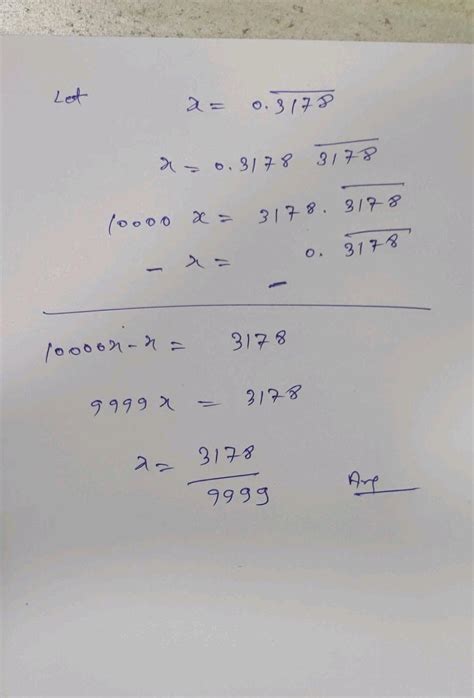 Let x = 0.3̅1̅7̅8̅
x = 0.3178 3̅1̅7̅8̅
10000 x = 3178. 3̅1̅7̅8̅
- x = 0. 3̅1̅7̅8̅
-
10000x - x = 3178
9999 x = 3178
x = 3178
9999
Ans